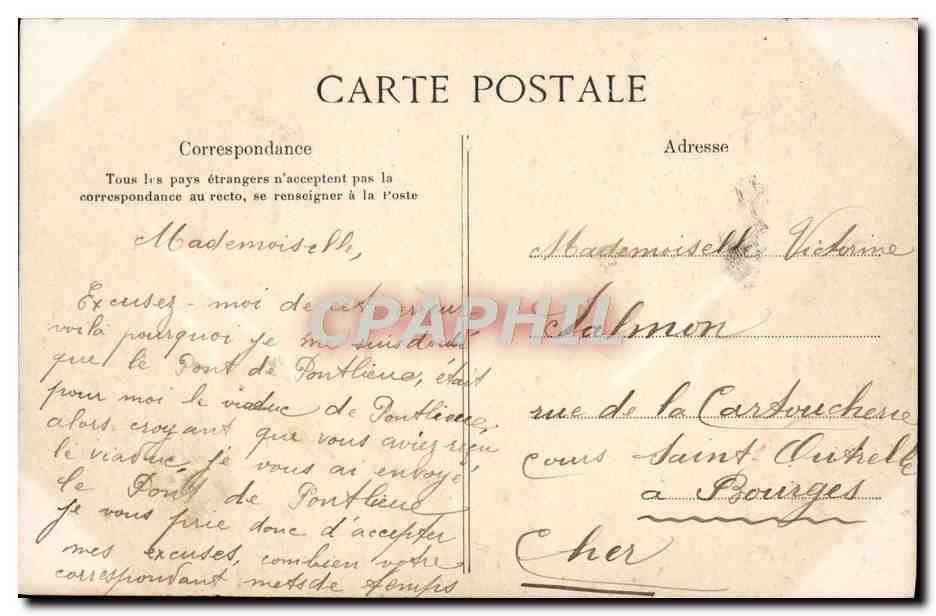 CARTE POSTALE
Correspondance
Tous les pays étrangers n'acceptent pas la
correspondance au recto, se renseigner à la Poste
Mademoiselle,
Excusez-moi de cet erreur
voilà pourquoi je me suis
que le Pont de Pontlieue, était
pour moi le viaduc de Pontlieue,
alors croyant que vous aviez reçu
le viaduc, je vous ai envoyé
le Pont de Pontlieue
je vous prie donc d'accepter
mes excuses, combien votre
correspondant metsde temps
Adresse
Mademoiselle Victorine
Salmon
rue de la Cartoucherie
cours Saint-Outrelle
a Bourges
Cher
CPAPHIL